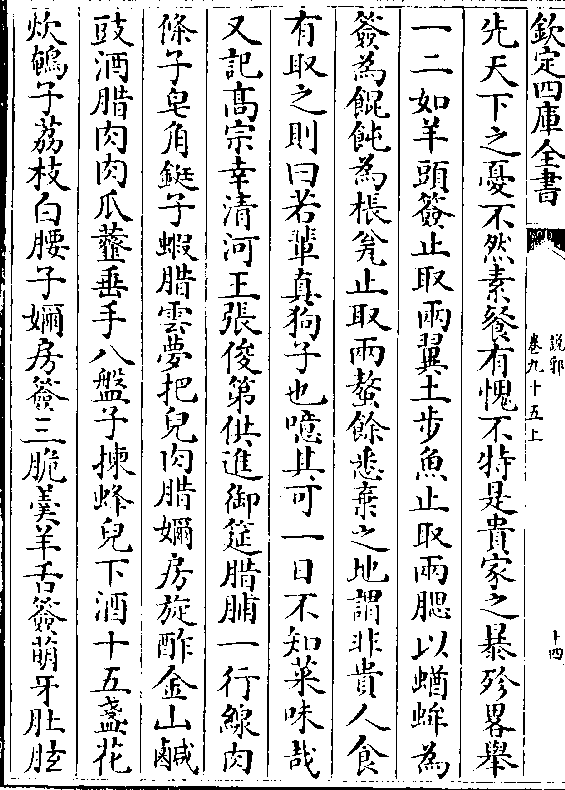 欽定四庫全書
說郛
卷九十五上
十四
先天下之憂不然素餐有愧不特是貴家之暴殄畧舉
一二如羊頭簽止取兩翼土步魚止取兩腮以蝤蛑為
簽為餛飩為棖瓮止取兩螯餘悉棄之地謂非貴人食
有取之則曰若輩真狗子也噫其可一日不知菜味哉
又記髙宗幸清河王張俊第供進御筵腊脯一行線肉
條子皂角鋌子蝦腊雲夢把兒肉腊嬭房旋酢金山鹹
豉酒腊肉肉瓜虀垂手八盤子揀蜂兒下酒十五盞花
炊鵪子荔枝白腰子嬭房簽三脆羮羊舌簽萌牙肚胘